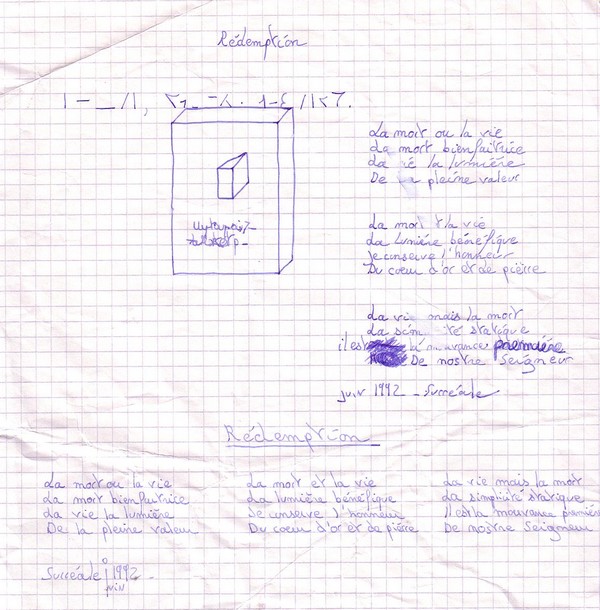 Rédemption
La mort ou la vie
La mort bienfaitrice
La la lumière
De pleine valeur
La mort la vie
La lumière bénéfique
Je conserve l'honneur
Du coeur d'or et de pierre
La vie mais la mort
La statique
il est la mouvance première
De nostre Seigneur
juin 1992 - Surréale
Rédemption
La mort ou la vie
La mort bienfaitrice
La vie la lumière
De la pleine valeur
La mort et la vie
La lumière bénéfique
Je conserve l'honneur
Du coeur d'or et de pierre
La vie mais la mort
La simplicité statique
Il est la mouvance première
De nostre Seigneur
Surréale juin 1992 -